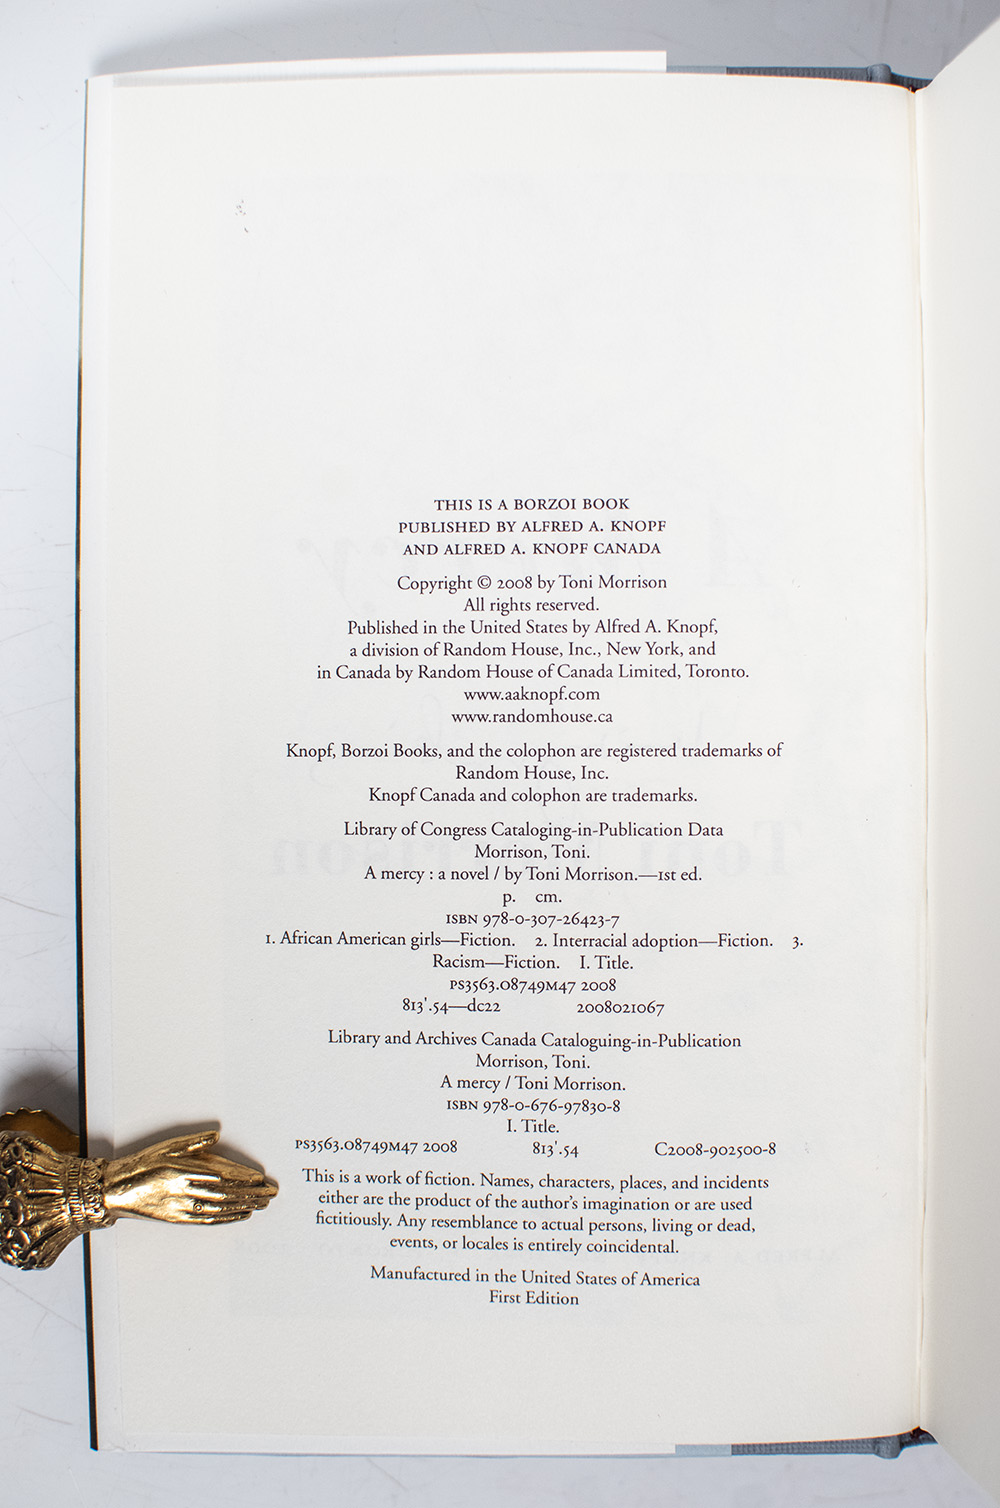 THIS IS A BORZOI BOOK
PUBLISHED BY ALFRED A. KNOPF
AND ALFRED A. KNOPF CANADA
Copyright © 2008 by Toni Morrison
All rights reserved.
Published in the United States by Alfred A. Knopf,
a division of Random House, Inc., New York, and
in Canada by Random House of Canada Limited, Toronto.
www.aaknopf.com
www.randomhouse.ca
Knopf, Borzoi Books, and the colophon are registered trademarks of
Random House, Inc.
Knopf Canada and colophon are trademarks.
Library of Congress Cataloging-in-Publication Data
Morrison, Toni.
A mercy : a novel / by Toni Morrison.—1st ed.
p. cm.
ISBN 978-0-307-26423-7
1. African American girls—Fiction. 2. Interracial adoption—Fiction. 3.
Racism—Fiction. I. Title.
PS3563.O8749M47 2008
813'.54—dc22 2008021067
Library and Archives Canada Cataloguing-in-Publication
Morrison, Toni.
A mercy / Toni Morrison.
ISBN 978-0-676-97830-8
I. Title.
PS3563.O8749M47 2008 813'.54 C2008-902500-8
This is a work of fiction. Names, characters, places, and incidents
either are the product of the author's imagination or are used
fictitiously. Any resemblance to actual persons, living or dead,
events, or locales is entirely coincidental.
Manufactured in the United States of America
First Edition